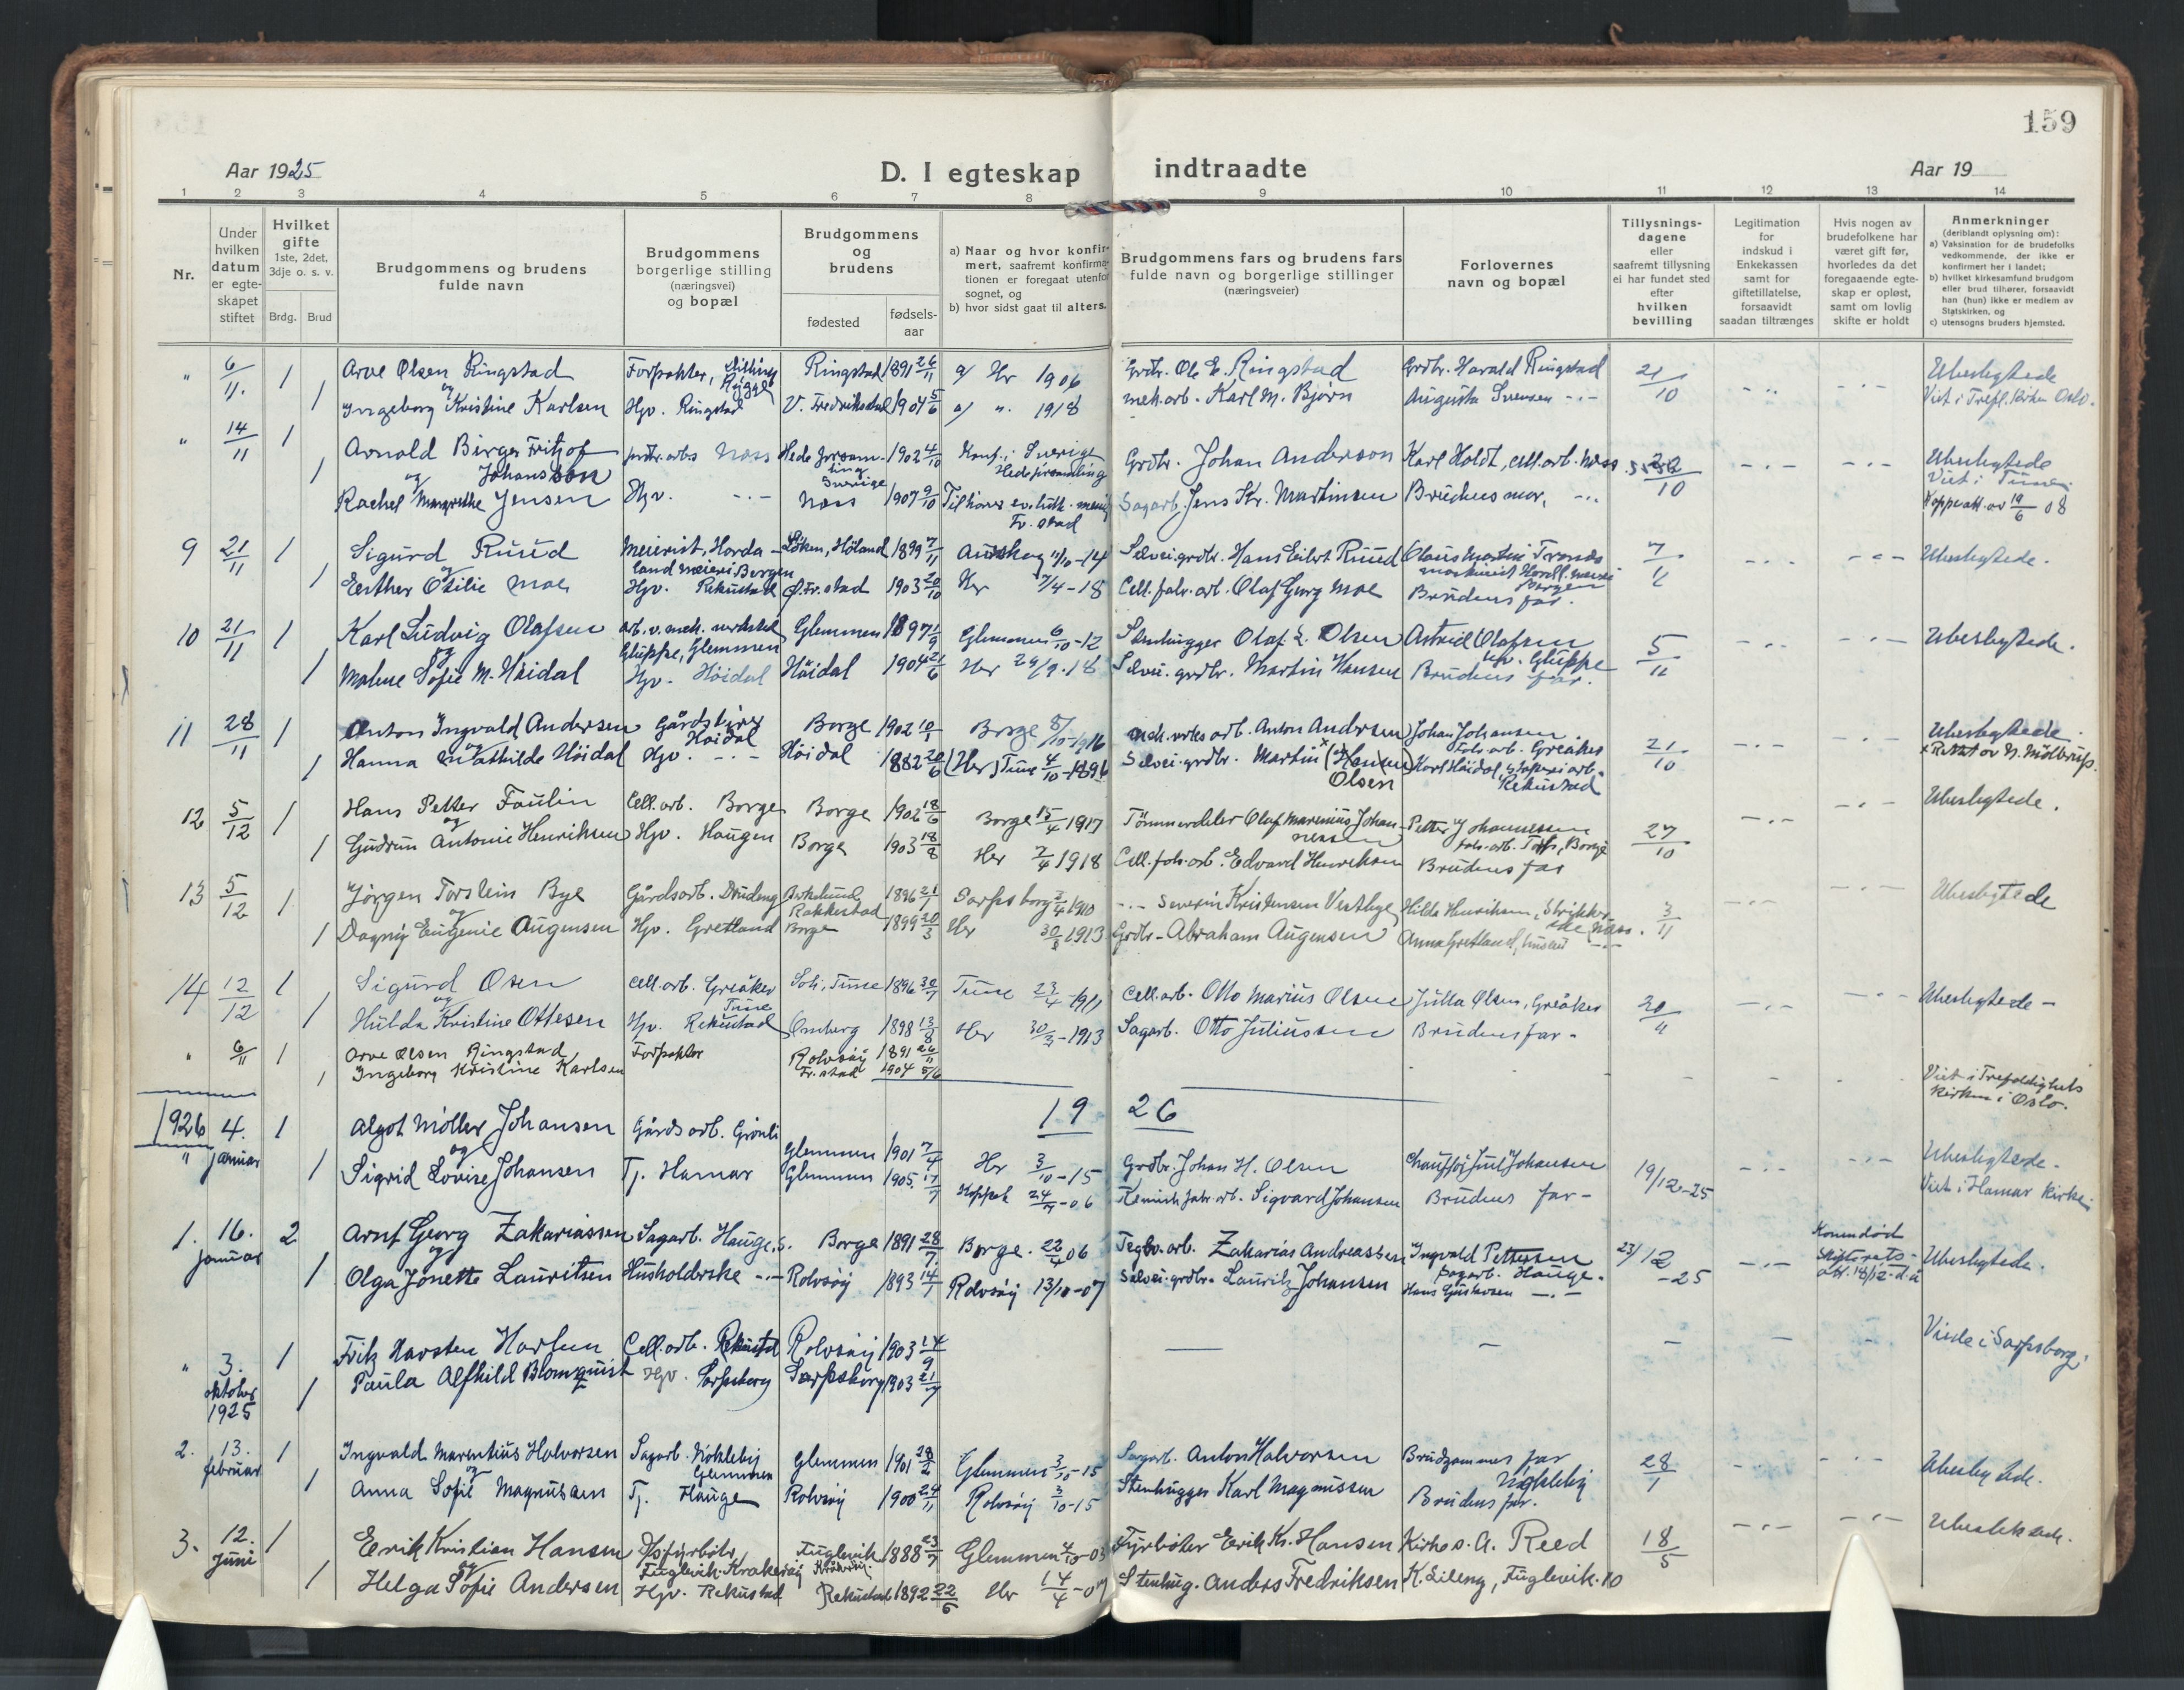 159
Aar 1925
D. I egteskap indtraadte
Aar 19
1 2 3 4 5 6 7 8 9 10 11 12 13 14
Nr.
Under hvilken datum er egteskapet stiftet
Hvilket gifte 1ste, 2det, 3dje o. s. v.
Brdg. Brud
Brudgommens og brudens fulde navn
Brudgommens borgerlige stilling (næringsvei) og bopæl
Brudgommens og brudens
fødested
fødsels-aar
a) Naar og hvor konfirmert, saafremt konfirmationen er foregaat utenfor sognet, og
b) hvor sidst gaat til alters.
Brudgommens fars og brudens fars fulde navn og borgerlige stillinger (næringsveier)
Forlovernes navn og bopæl
Tillysningsdagene eller saafremt tillysning ei har fundet sted efter hvilken bevilling
Legitimation for indskud i Enkekassen samt for giftetillatelse, forsaavidt saadan tiltrænges
Hvis nogen av brudefolkene har været gift før, hvorledes da det foregaaende egteskap er opløst, samt om lovlig skifte er holdt
Anmerkninger (deriblandt oplysning om):
a) Vaksination for de brudefolks vedkommende, der ikke er konfirmert her i landet;
b) hvilket kirkesamfund brudgom eller brud tilhører, forsaavidt han (hun) ikke er medlem av Statskirken, og
c) utensogns bruders hjemsted.
" 6/11. 1 Arve Olsen Ringstad Forpakter, Ringstad 1891 26/11 a/ Her 1906 Grdbr. Ole E. Ringstad Grdbr. Harald Ringstad 21/10 Ubeslegtede
og
1 Ingeborg Kristine Karlsen Hjv. Ringstad V. Fredrikstad 1904 5/6 a/ ". 1918 mek.arb. Karl M. Bjørn Augusta Svensen -"- Viet i Trefl. kirke Oslo.
" 14/11 1 Arnold Birger Fritjof Johansson Næss Hede forsamling Sverige 1902 4/10 Konf. i Sverige Hede forsamling Grdbr. Johan Anderson Karl Holdt, cell.arb. Næss /10 Ubeslegtede
og Viet i Tune
1 Rachel Margrethe Jensen Hjv. -"- Næss 1907 9/10 Tilhører ev. luth. menig. Fr.stad Sagarb. Jens Kr. Martinsen Brudens mor, -"- Koppeatt. av 19/6 08
9 21/11 1 Sigurd Ruud Meierist, Hordaland meieri Bergen Løken, Høland 1899 7/11 Aurskog 11/10-14 Selveigrdbr. Hans Eilert Ruud Olaus Martin Trondsmaskinist Hordl. meieri Bergen 7/11 Ubeslegtede.
og
1 Esther Otilie Moe Hjv. Rekustad Ø. Fr.stad 1903 20/10 Her 7/4-18 Cell. fabr. arb. Olaf Georg Moe Brudens far.
10 21/11 1 Karl Ludvig Olafsen arb. v. mek. verksted Gluppe, Glemmen Glemmen 1897 1/9 Glemmen 6/10-12 Stenhugger Olaf L. Olsen Astrid Olafsen Hjv. Gluppe 5/11 Ubeslegtede.
og
1 Malene Sofie M. Höidal Hjv. Höidal Höidal 1904 21/6 Her 29/9-18 Selvei. grdbr. Martin Hansen Brudens far.
11 28/11 1 Anton Ingvald Andersen Gårdsbrer Höidal Borge 1902 10/1 Borge 8/10-1916 mek. verks arb. Anton Andersen Johan Johansen Fab. arb. Greåker 21/10 Ubeslegtede.
og
1 Hanna Mathilde Höidal Hjv. -"- Höidal 1882 20/6 (Her) Tune 4/10-1896 Selvei.grdbr. Martin x (Hansen) Olsen Karl Höidal, Rekustad x Rettet av N. Moltrup.
12 5/12 1 Hans Petter Faulin Cell.arb. Borge Borge 1902 18/6 Borge 15/4 1917 Tömmerdeler Olaf Marinius Johannessen Petter Johannessen fab.arb. Torp, Borge 27/10 Ubeslegtede.
og
1 Gudrun Antonie Henriksen Hjv. Haugen Borge 1903 18/8 Her 7/4 1918 Cell. fab. arb. Edvard Henriksen Brudens far
13 5/12 1 Jörgen Torstein Bye Gårdsarb. Drudeng Askelund Rakkestad 1896 21/1 Sarpsborg 3/4 1910 -"- Severin Kristensen Vestbye Hilda Henriksen, Strikkerske Næss. 3/11 Ubeslegtede
og
1 Dagny Eugenie Augensen Hjv. Gretland Borge 1899 20/3 Her 30/3 1913 Grdbr. Abraham Augensen Anna Gretland, -"-
14 12/12 1 Sigurd Osen Cell.arb. Greåker Tune Soli, Tune 1896 30/7 Tune 23/4 1911 Cell.arb. Otto Marius Olsen Julla Olsen, Greåker 20/11 Ubeslegtede -
og
1 Hulda Kristine Ottesen Hjv. Rekustad Omberg 1898 13/8 Her 30/3-1913 Sagarb. Otto Juliussen Brudens far -
" 6/11 1 Arve Olsen Ringstad Forpakter Rolvsöy 1891 26/11
1 Ingeborg Kristine Karlsen Fr.stad 1904 5/6 Viet i Trefoldighets kirken i Oslo.
1926
1926 4. januar 1 Algot Möller Johansen Gårdsarb. Grönli Glemmen 1901 7/4 Her 3/10-15 Grdbr. Johan H. Olsen Chauffør Juul Johansen 19/12-25 Ubeslegtede.
og
" 1 Sigrid Lovise Johansen Tj. Hamar Glemmen 1905 17/7 Koppeh 24/7-06 Kemisk fabr. arb. Sigvard Johansen Brudens far - Viet i Hamar kirke.
1. 16. januar 2 Arnt Georg Zakariassen Sagarb. Hauge, s. Borge 1891 28/7 Borge. 22/4 06 Teglv. arb. Zakarias Andreassen Ingvald Pettersen Sagarb. Hauge. 23/12-25 Konen död Skifterets-att. 18/12 d.å. Ubeslegtede.
og
1 Olga Jonette Lauritsen Husholderske -"- Rolvsöy 1893 14/1 Rolvsöy 13/10-07 Selvei.grdbr. Lauritz Johansen Hans Gustavsen -"-
" 3. oktober 1925 1 Fritz Harsten Karlsen Cell.arb. Rekustad Rolvsöy 1903 14/9 Viede i Sarpsborg.
1 Paula Alfhild Blomquist Hjv. Sarpsborg Sarpsborg 1903 21/7
2. 13. februar 1 Ingvald Marentius Halvorsen Sagarb. Nökleby Glemmen Glemmen 1901 28/2 Glemmen 3/10-15 Sagarb. Anton Halvorsen Brudgommens far Nökleby 28/1 Ubeslegtede.
og
1 Anna Sofie Magnussen Tj. Hauge Rolvsöy 1900 24/11 Rolvsöy 3/10-15 Stenhugger Karl Magnussen Brudens far.
3. 12. Juni 1 Eerik Kristian Hansen Fuglevik Kråkeröy Fuglevik Kråkeröy 1888 23/7 Glemmen 4/10-03 Fyrböter Eerik Kr. Hansen Kirkes. A. Reed 18/5 Ubeslektede.
og
1 Helga Sofie Andersen Hjv. Rekustad Rekustad 1892 22/6 Her 14/4-07 Stenhug. Anders Fredriksen K. Lileng, Fuglevik.